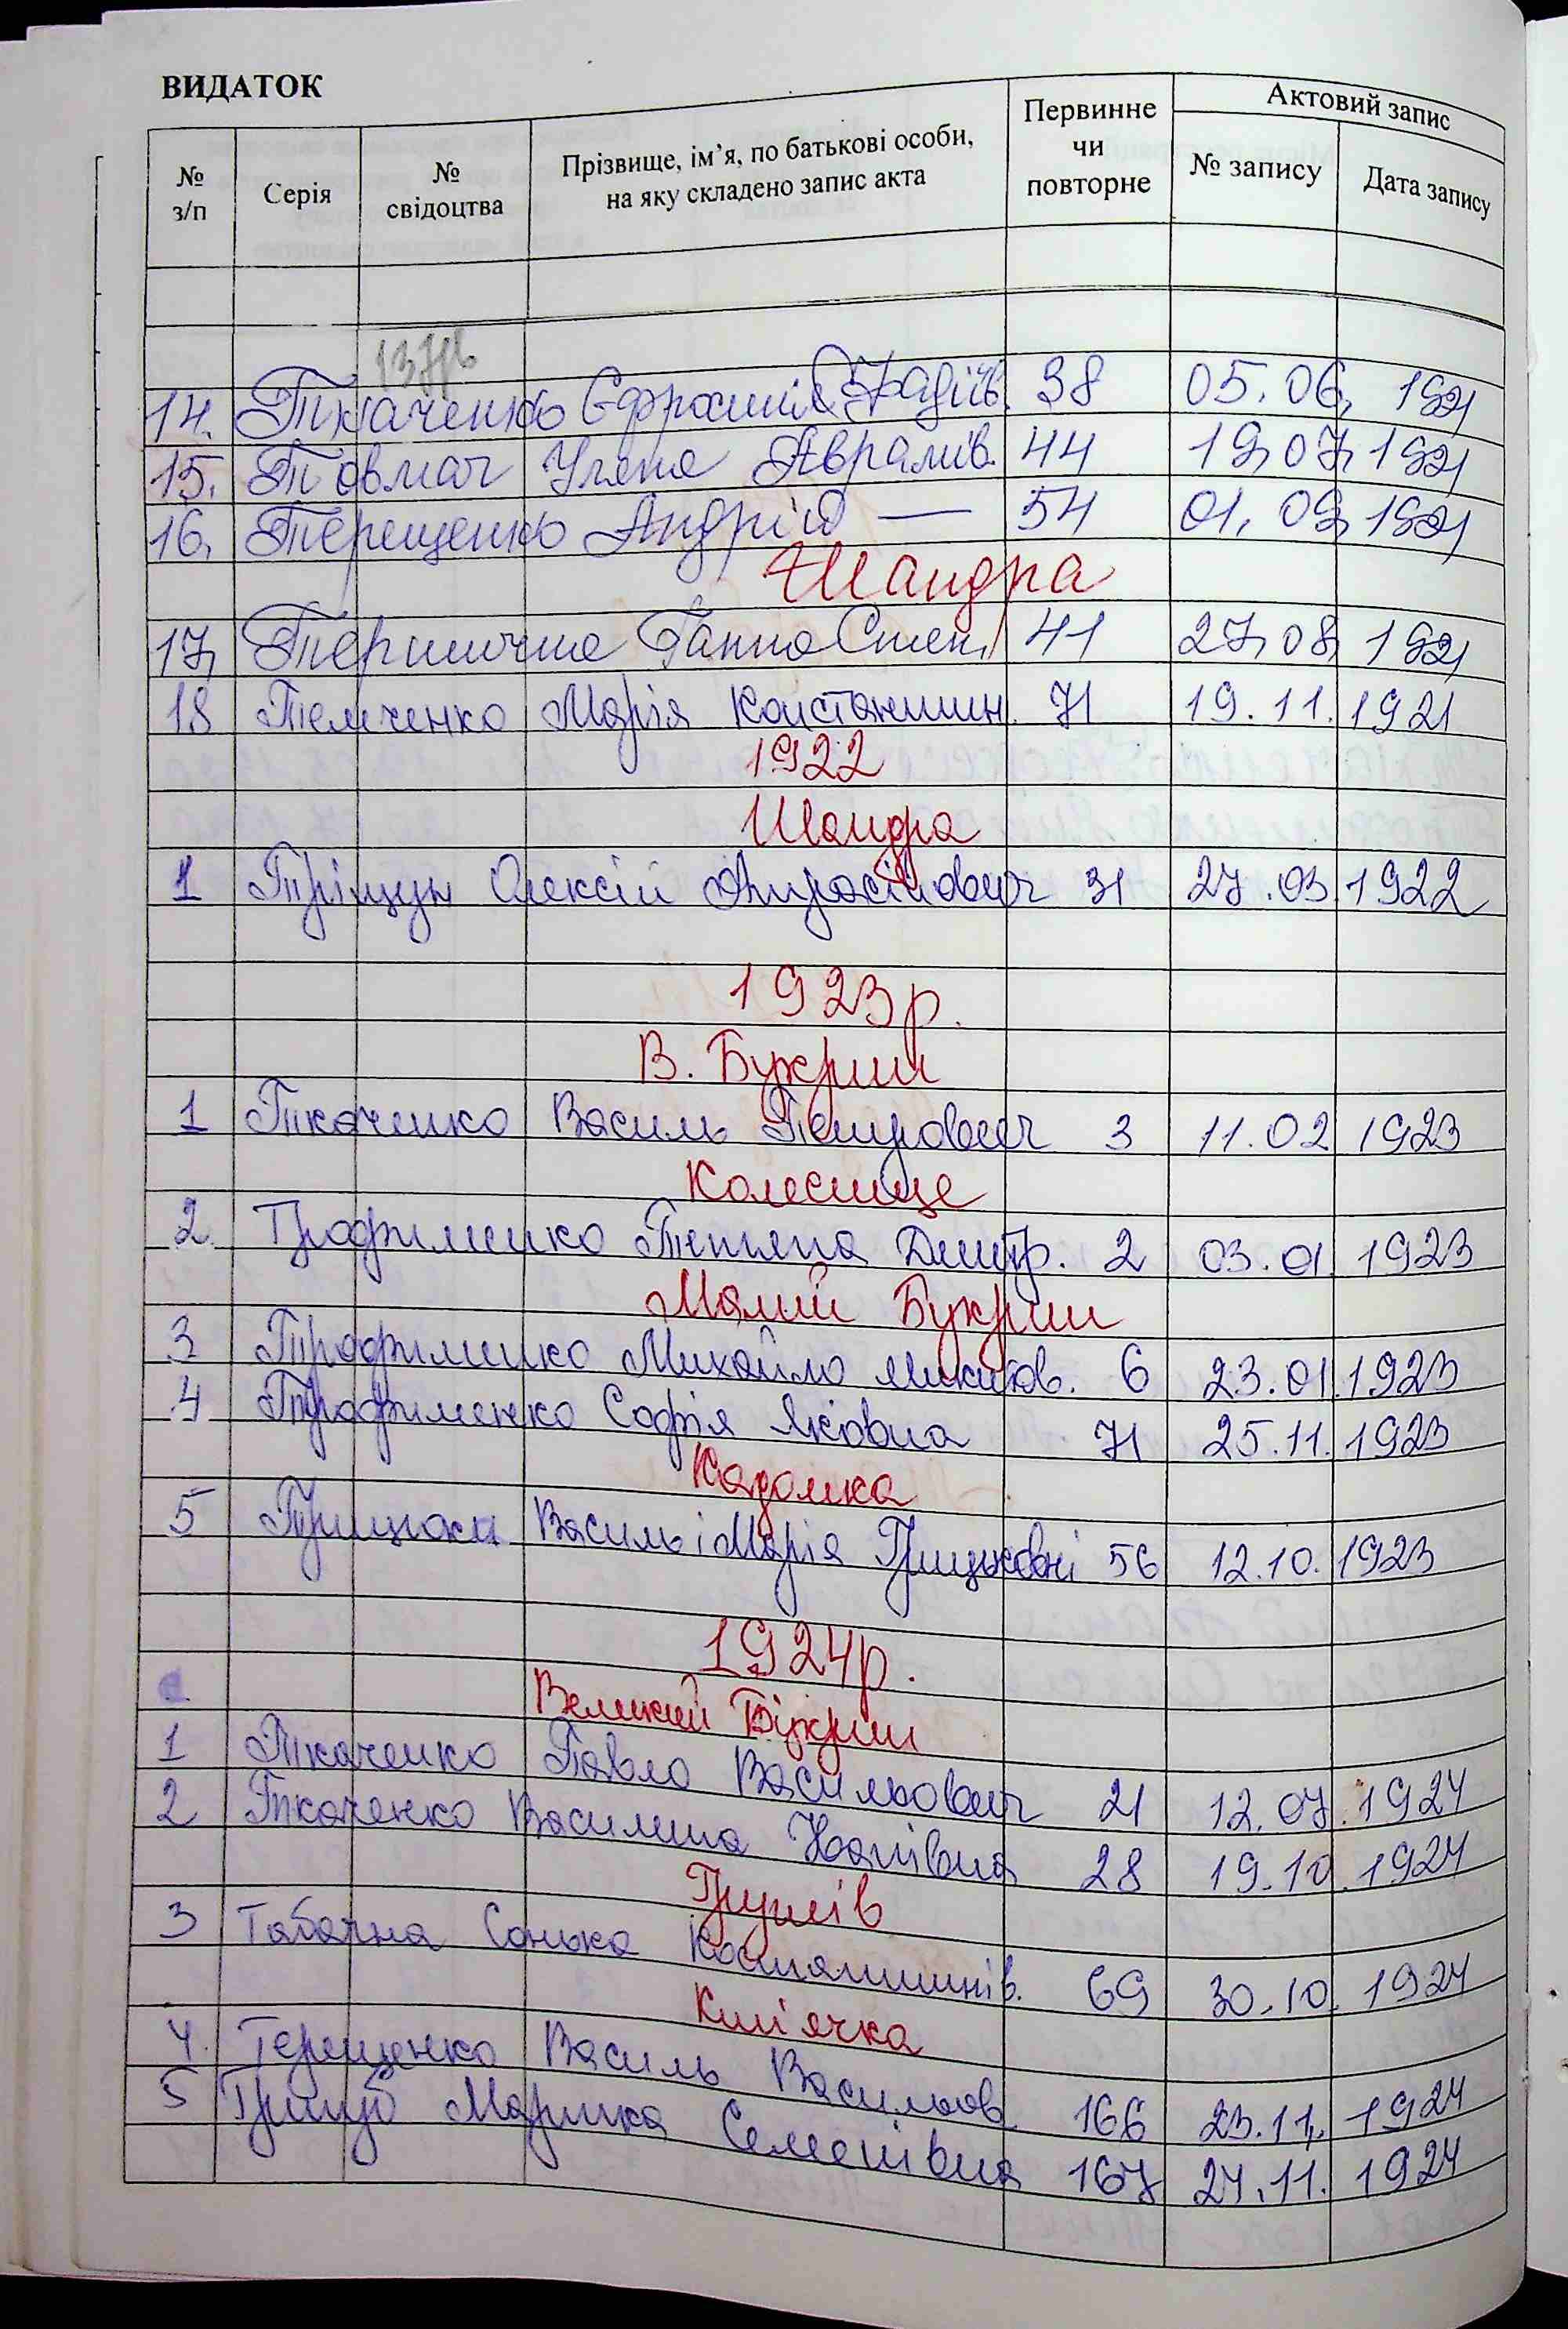 ВИДАТОК
№ з/п Серія № свідоцтва Прізвище, ім'я, по батькові особи, на яку складено запис акта Первинне чи повторне Актовий запис № запису Дата запису
14. Ткаченко Єфросинія 38 05.06. 1921
15. Товмач Уляна Аврамів. 44 19.07. 1921
16. Терещенко Андрій — 54 01.09. 1921
Шандра
17. Ганна Степ. 41 27.08. 1921
18 Темченко Марія Константин. 71 19.11. 1921
1922
Шандра
1 Тріщун Олексій 31 27.03 1922
1923р.
В. Букрин
1 Ткаченко Василь Петрович 3 11.02 1923
Колесище
2. Трофименко Тетяна Дмитр. 2 03.01. 1923
Малий Букрин
3 Трофименко Михайло Микитов. 6 23.01. 1923
4 Трофименко Софія Яківна 71 25.11. 1923
Кадомка
5 Василь і Марія Грицькові 56 12.10. 1923
1924р.
Великий Букрин
1 Ткаченко Павло Васильович 21 12.07. 1924
2 Ткаченко Василина 28 19.10. 1924
Грушів
3 Табачна Сонька Костянтинів. 69 30.10. 1924
Кип'ячка
4. Терещенко Василь Васильов 166 23.11. 1924
5 Маринка Семенівна 167 24.11. 1924